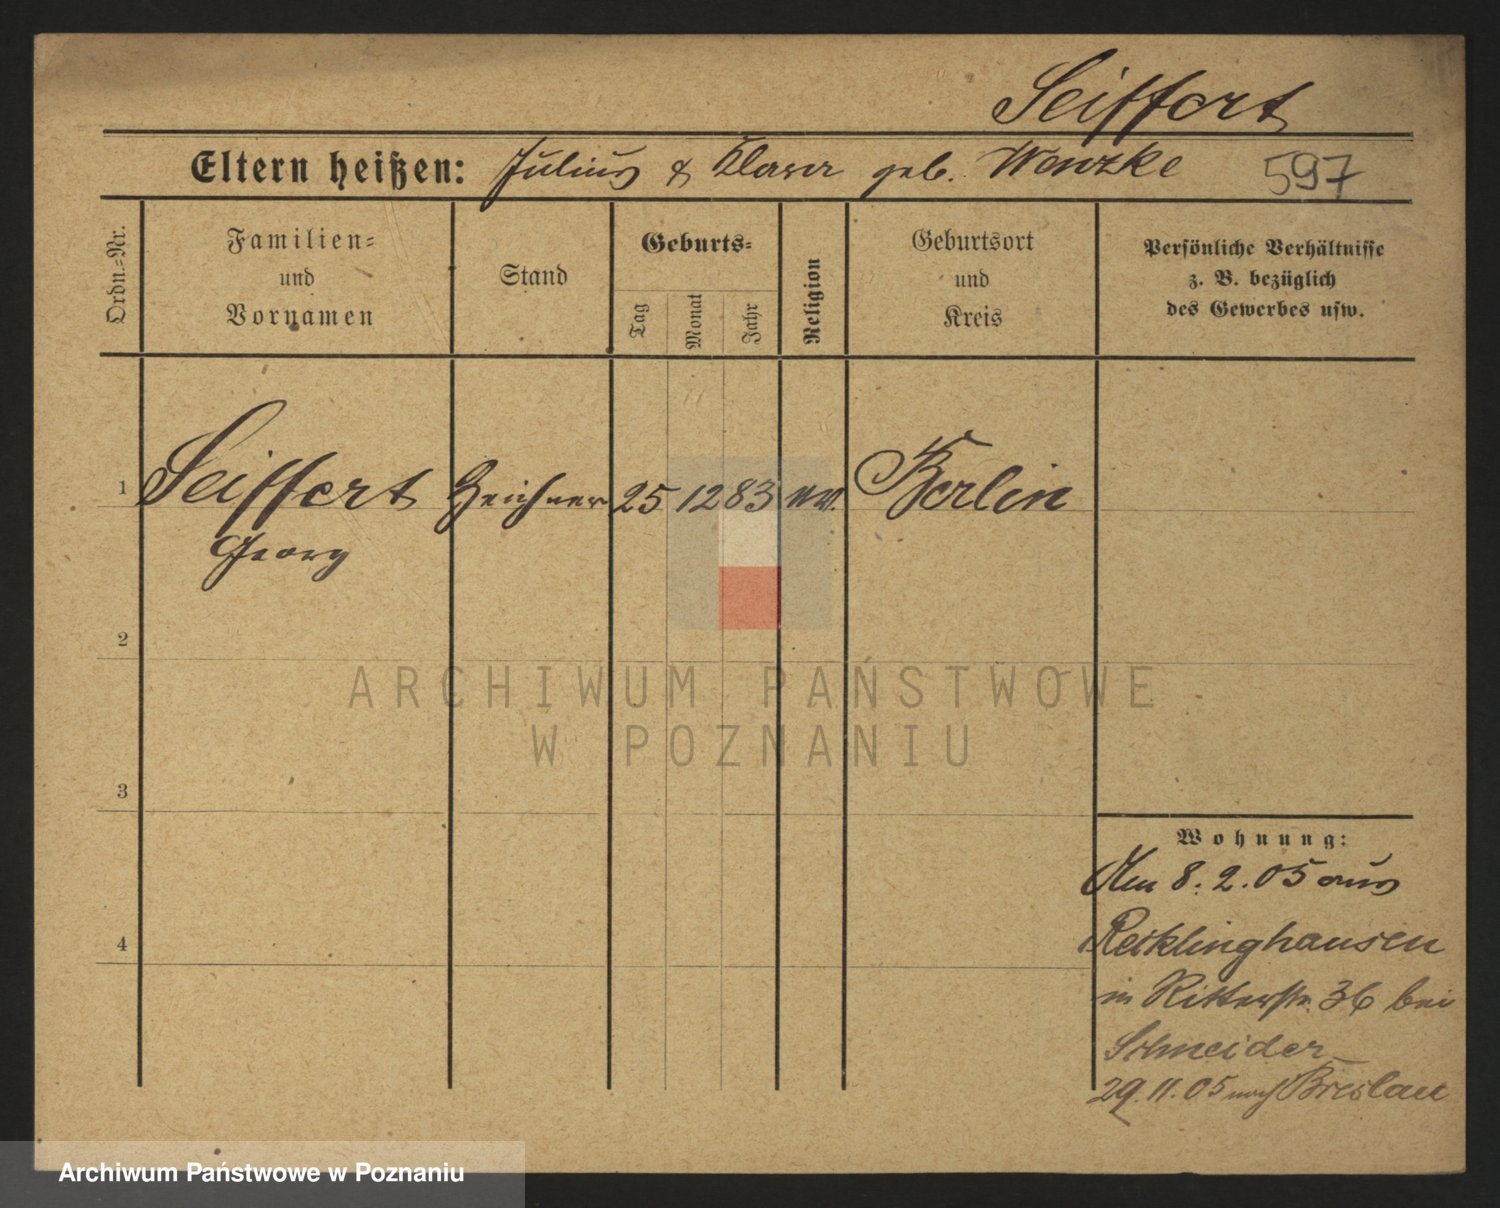 Seiffert
Eltern heißen: Julius & Klara geb. Wenzke
597
Ordn.=Nr.
Familien=
und
Vornamen
Stand
Geburts=
Tag
Monat
Jahr
Religion
Geburtsort
und
Kreis
Persönliche Verhältnisse
z. B. bezüglich
des Gewerbes usw.
1 Seiffert Zeichner 25 12 83 ev. Berlin
Georg
2
3
4
Wohnung:
Am 8.2.05 aus
Recklinghausen
in Ritterstr. 36 bei
Schneider
29.11.05 nach Breslau
ARCHIWUM PAŃSTWOWE
W POZNANIU
Archiwum Państwowe w Poznaniu